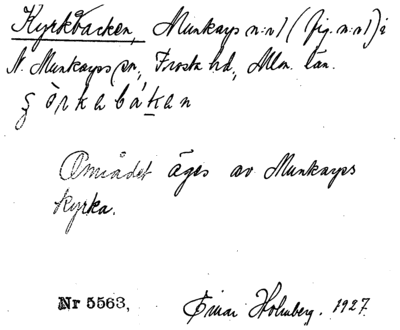 Kyrkbacken, Munkarps n:r1 (fig. n:r1) i
N. Munkarps sn, Frosta hd, Mlm. län.
Området äges av Munkarps
kyrka.
Nr 5563, Einar Holmberg. 1927.